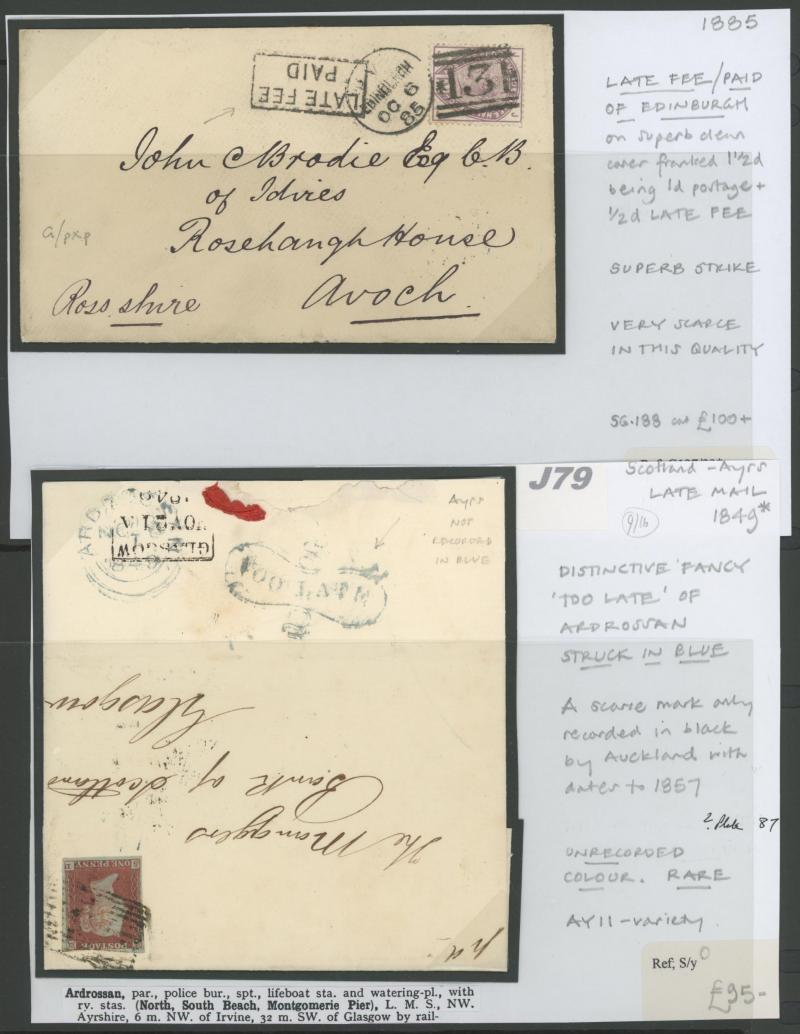 1885
LATE FEE/PAID
OF EDINBURGH
on superb clean
cover franked 1½d
being 1d postage +
½d LATE FEE
SUPERB STRIKE
VERY SCARCE
IN THIS QUALITY
SG.188 cat £100+
LATE FEE
PAID
EDINBURGH
OC 6
85
131
John C Brodie Esq C.B.
of Idvies
Rosehaugh House
Avoch
Ross.shire
a/pxp
J79
Scotland - Ayrs
LATE MAIL
1849*
9/16
DISTINCTIVE 'FANCY
'TOO LATE' OF
ARDROSSAN
STRUCK IN BLUE
A scarce mark only
recorded in black
by Auckland with
dates to 1857
? Plate 87
UNRECORDED
COLOUR. RARE
AY11 - variety
Ref; S/y
£95-
Ayrs
NOT
RECORDED
IN BLUE
ARDROSSAN
1849
GLASGOW
TOO LATE
The Managers
Bank of Scotland
Glasgow
POSTAGE
ONE PENNY
Ardrossan, par., police bur., spt., lifeboat sta. and watering-pl., with
ry. stas. (North, South Beach, Montgomerie Pier), L. M. S., NW.
Ayrshire, 6 m. NW. of Irvine, 32 m. SW. of Glasgow by rail-